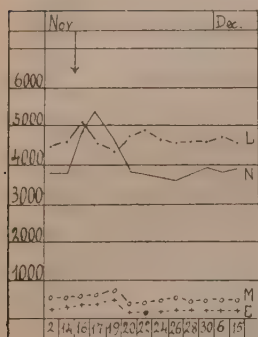 Nov Dec.
6000
5000
L
4000
N
3000
2000
1000
M
E
2 14 16 17 19 20 22 24 26 28 30 6 15